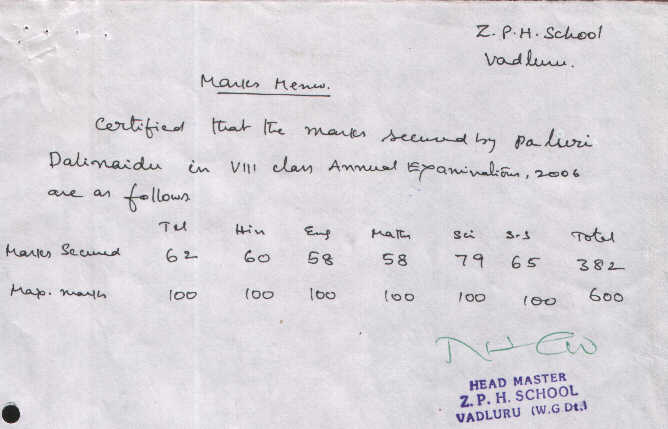 Z.P.H. School
Vadluru.
Marks Memo.
Certified that the marks secured by Paluri
Dalinaidu in VIII class Annual Examinations, 2006
are as follows
Tel Hin Eng Maths Sci S.S Total
Marks Secured 62 60 58 58 79 65 382
Max. marks 100 100 100 100 100 100 600
HEAD MASTER
Z. P. H. SCHOOL
VADLURU (W.G Dt.)